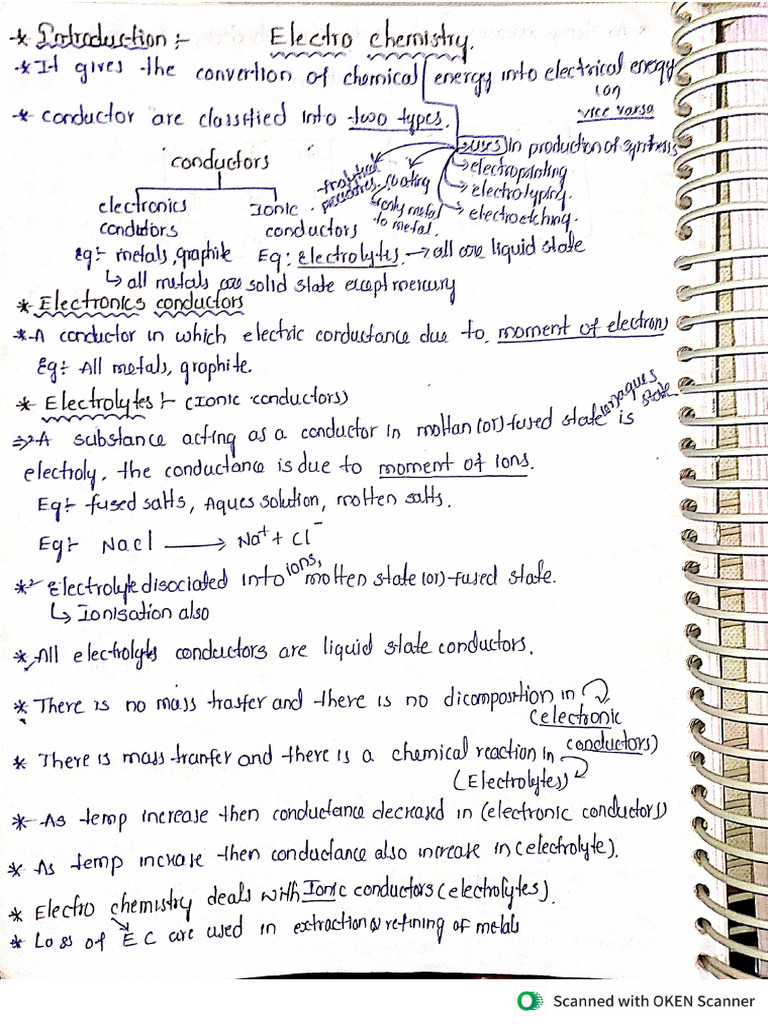 * Introduction :- Electro chemistry.
* It gives the convertion of chemical energy into electrical energy
(or)
vice varsa
* conductor are classified into two types.
uses in production of synthesis
conductors
Analytical processes.
coating
only metal
to metal.
electroprinting
electrotyping.
electroetching.
electronics Ionic
condutors conductors
Eg:- metals, graphite Eg: Electrolytes. → all are liquid state
↳ all metals are solid state except mercury
* Electronics conductors
* A conductor in which electric conductance due to moment of electrons
Eg:- All metals, graphite.
* Electrolytes :- (Ionic conductors)
⇒ A substance acting as a conductor in moltan (or) fused state (or) aques state is
electroly. the conductance is due to moment of ions.
Eg:- fused salts, Aques solution, molten salts.
Eg:- Nacl ⟶ Na⁺ + Cl⁻
* Electrolyte disociated into ions, molten state (or) fused state.
↳ Ionisation also
* All electrolytes conductors are liquid state conductors.
* There is no mass trasfer and there is no dicomposition in
(electronic
conductors)
* There is mass tranfer and there is a chemical reaction in
(Electrolytes)
* As temp increase then conductance decreased in (electronic conductors)
* As temp increase then conductance also increase in (electrolyte).
* Electro chemistry deals with Ionic conductors (electrolytes).
* Loss of EC are used in extraction & refining of metals
Scanned with OKEN Scanner